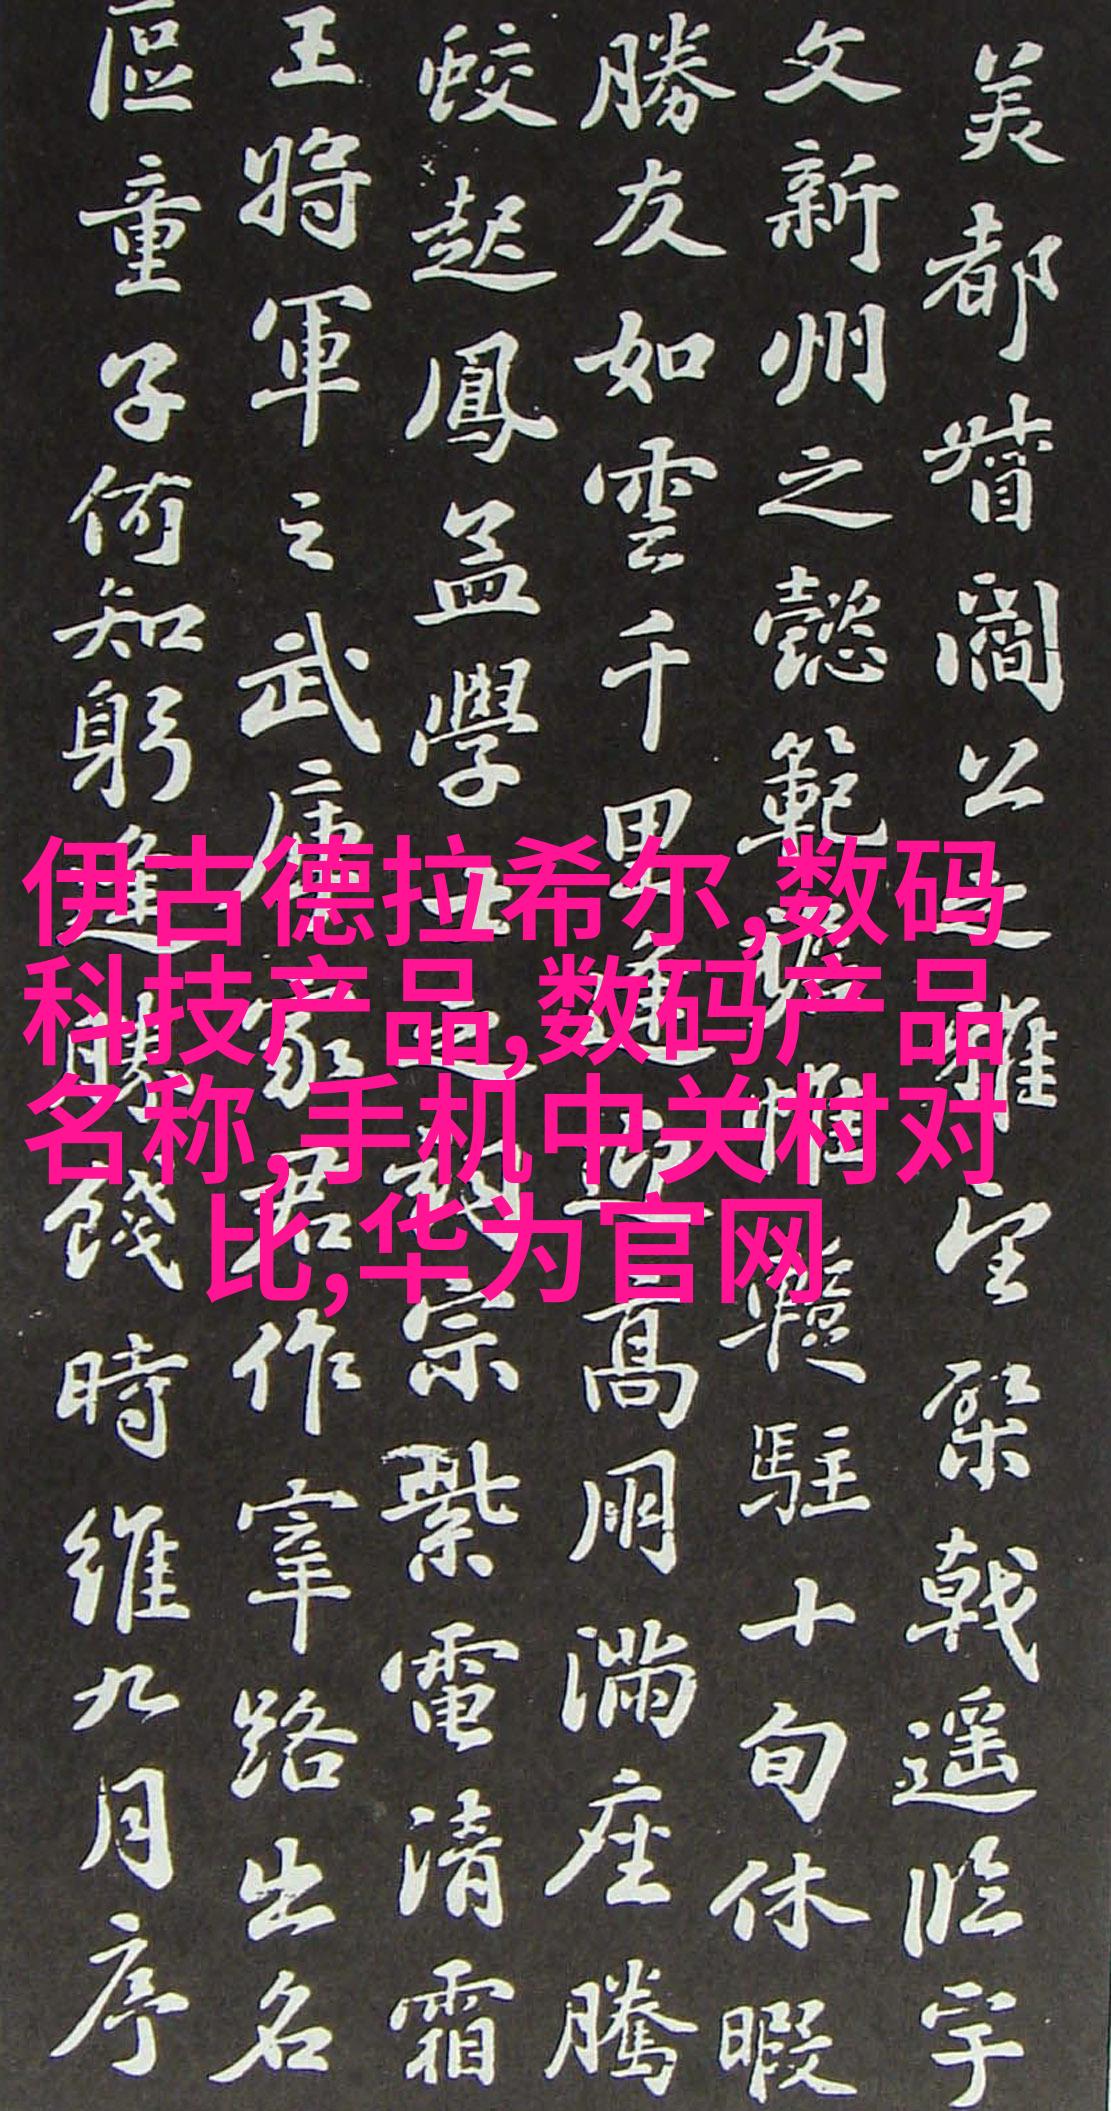 美都督閻公之雅望棨戟遥臨宇
文新州之懿範襜帷蹔駐十旬休暇
勝友如雲千里逢迎高朋滿座騰
蛟起鳳孟學士之詞宗紫電清霜
王將軍之武庫家君作宰路出名
區童子何知躬逢勝餞時維九月序
伊古德拉希尔,数码
科技产品,数码产品
名称,手机中关村对
比,华为官网